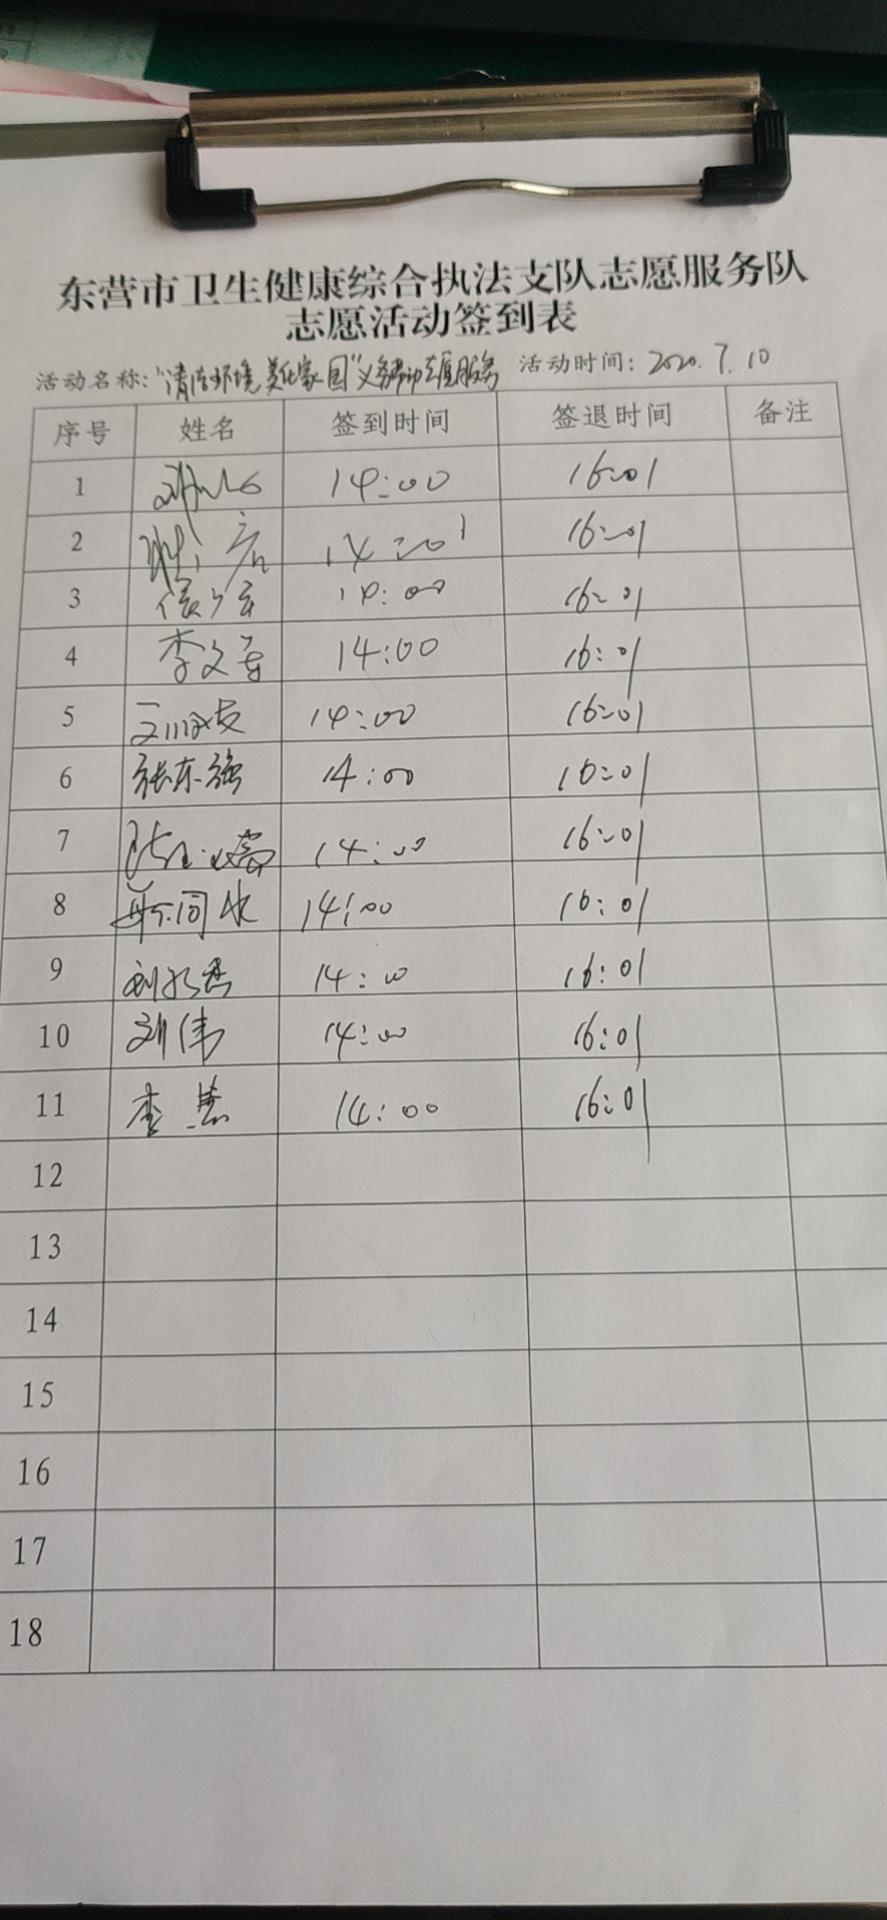 东营市卫生健康综合执法支队志愿服务队
志愿活动签到表
活动名称：“清洁环境 美化家园”义务劳动志愿服务 活动时间：2020.7.10
序号 姓名 签到时间 签退时间 备注
1 14:00 16:01
2 14:01 16:01
3 14:00 16:01
4 李文 14:00 16:01
5 14:00 16:01
6 张东强 14:00 16:01
7 14:00 16:01
8 14:00 16:01
9 14:00 16:01
10 刘伟 14:00 16:01
11 李慧 14:00 16:01
12
13
14
15
16
17
18